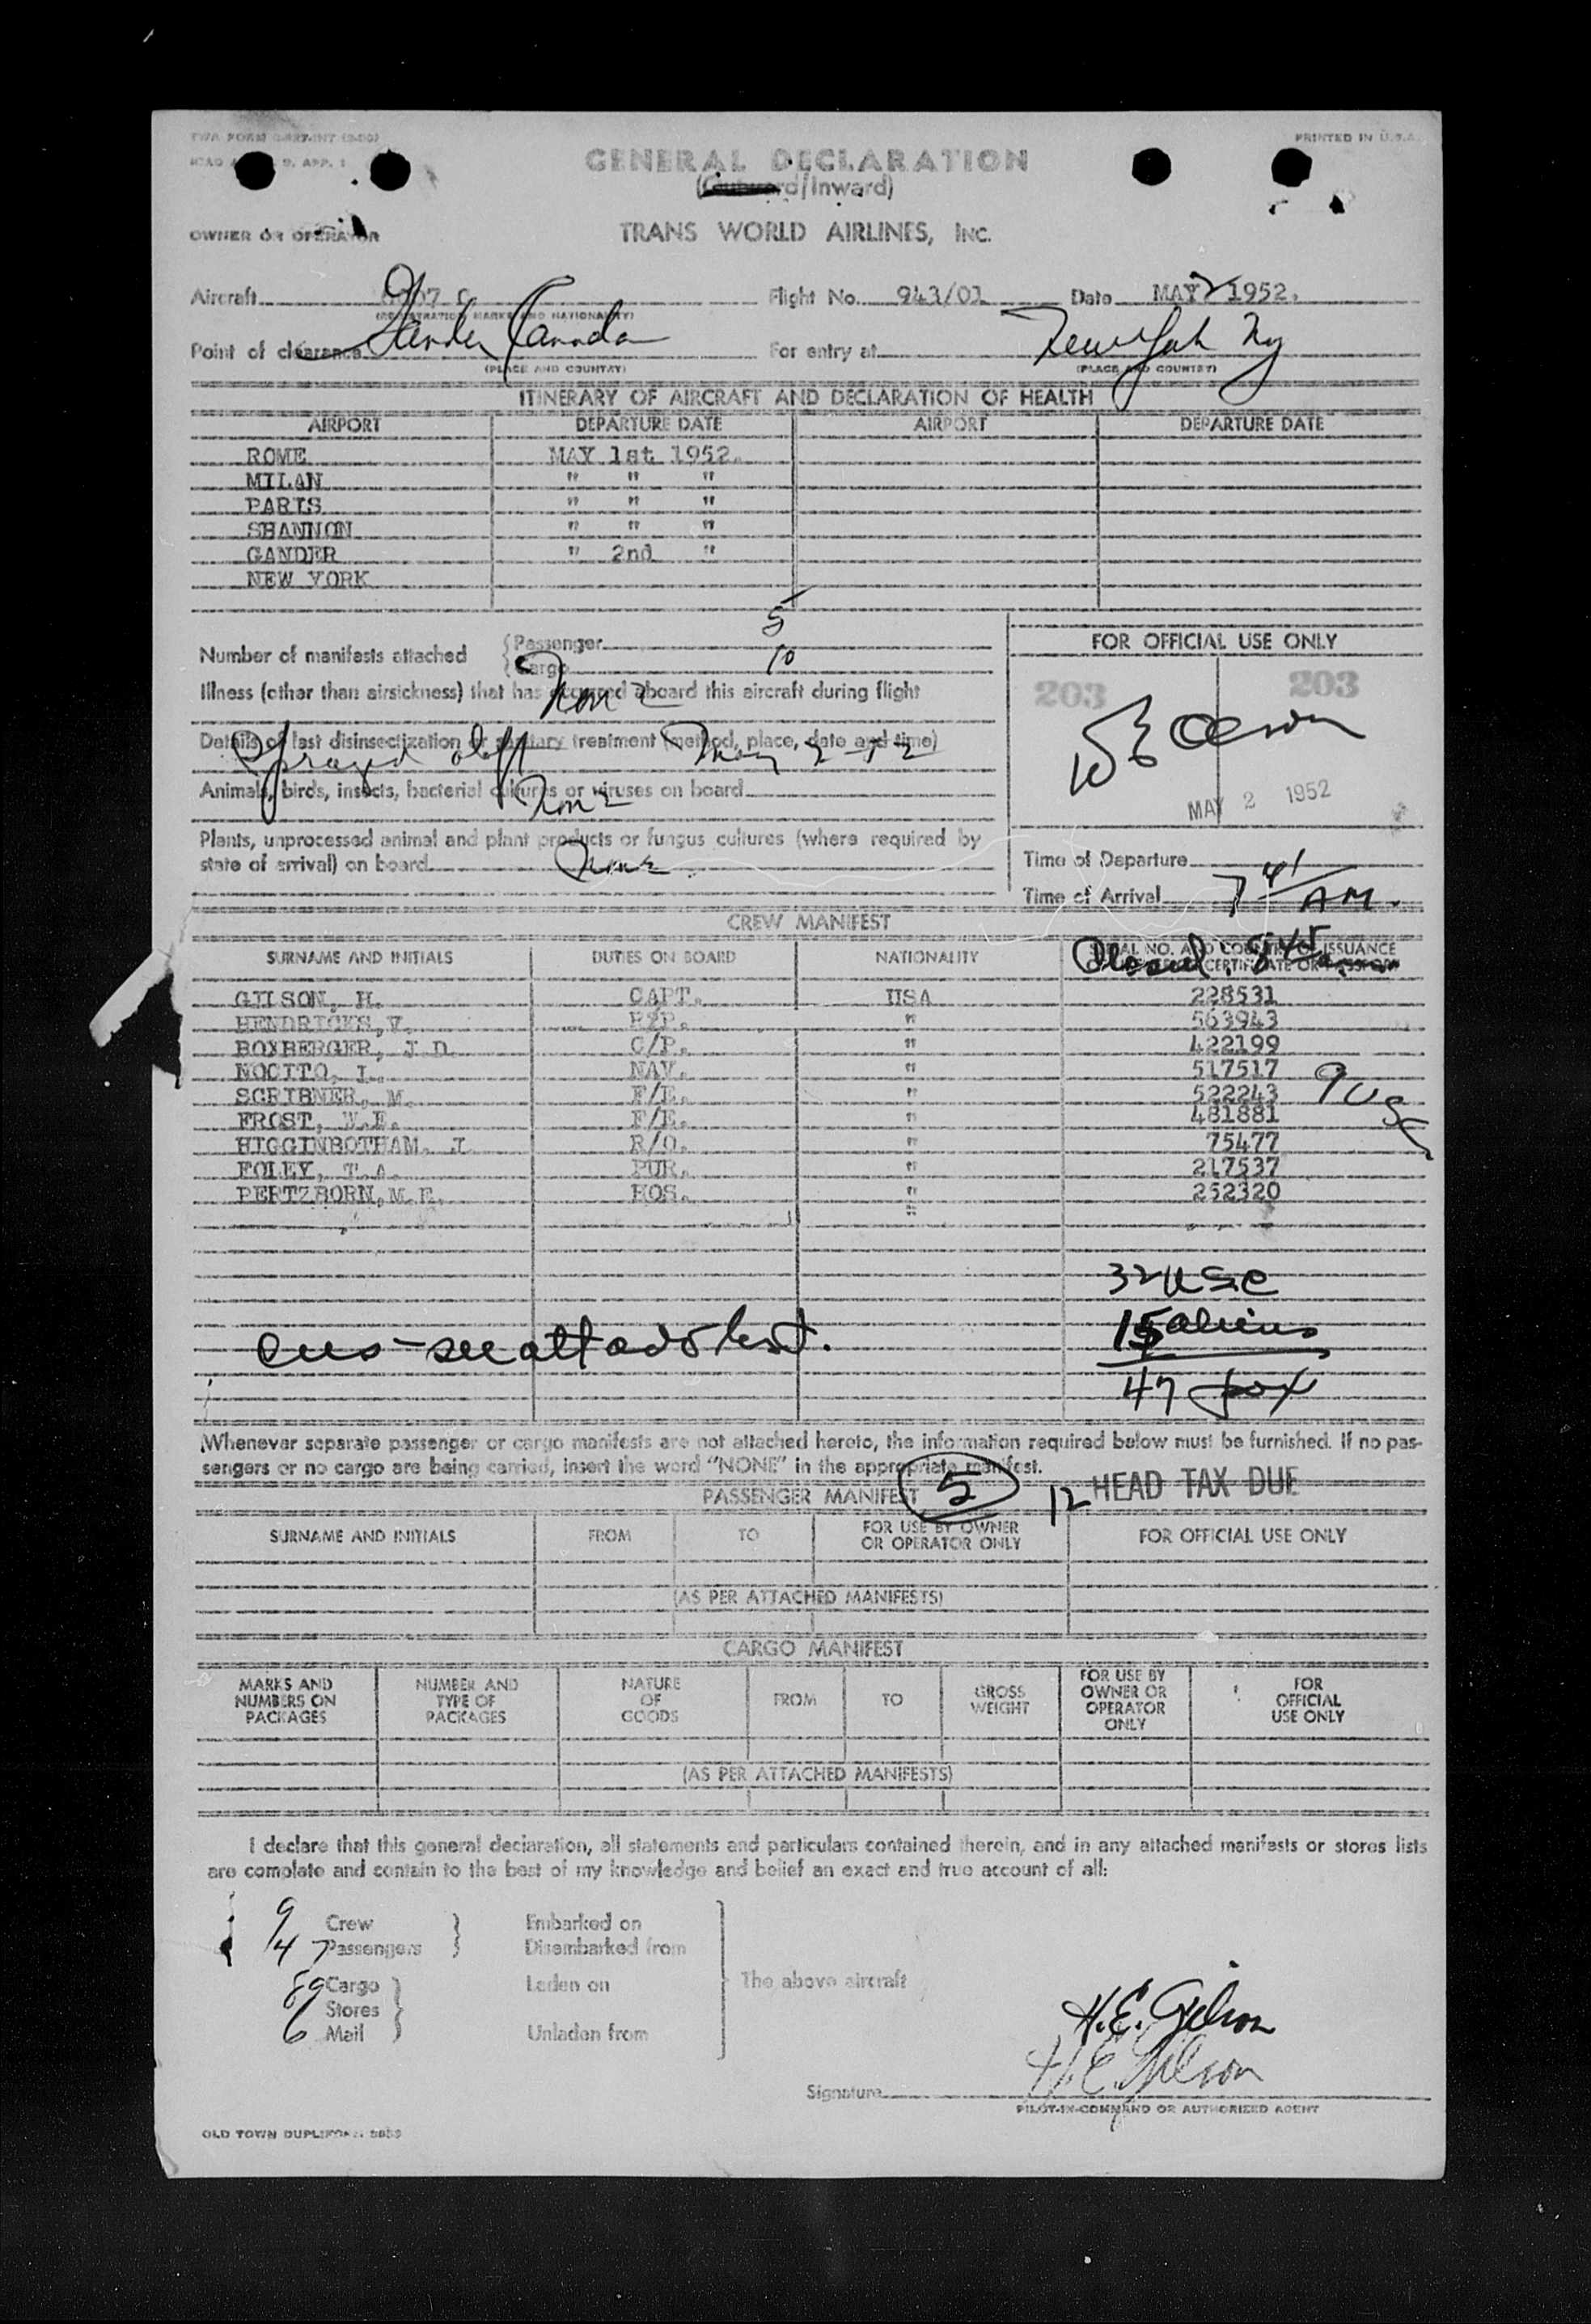 PRINTED IN U.S.A.
GENERAL DECLARATION
/Inward)
OWNER OR OPERATOR
TRANS WORLD AIRLINES, INC.
Aircraft Flight No. 943/01 Date MAY 2 1952.
(REGISTRATION MARKS AND NATIONALITY)
Point of clearance Gander Canada For entry at New York Ny
(PLACE AND COUNTRY) (PLACE AND COUNTRY)
ITINERARY OF AIRCRAFT AND DECLARATION OF HEALTH
AIRPORT DEPARTURE DATE AIRPORT DEPARTURE DATE
ROME MAY 1st 1952.
MILAN " " "
PARIS " " "
SHANNON " " "
GANDER " 2nd "
NEW YORK
Number of manifests attached
Passenger 5
Cargo 10
Illness (other than airsickness) that has occurred aboard this aircraft during flight
None
Details of last disinsectization or sanitary treatment (method, place, date and time)
Sprayed May 2-52
Animals, birds, insects, bacterial cultures or viruses on board
None
Plants, unprocessed animal and plant products or fungus cultures (where required by
state of arrival) on board None
FOR OFFICIAL USE ONLY
203 203
Olson
MAY 2 1952
Time of Departure
Time of Arrival 7 41 AM.
CREW MANIFEST
SURNAME AND INITIALS DUTIES ON BOARD NATIONALITY SERIAL NO. AND COUNTRY OF ISSUANCE
GILSON, H. CAPT. USA 228531
HENDRICKS, V. R2P. " 563943
BOXBERGER, J.D. C/P. " 422199
NOCITO, I. NAV. " 517517
SCRIBNER, M. F/E. " 522243
FROST, W.E. F/E. " 481881
HIGGINBOTHAM, J. R/O. " 75477
FOLEY, T.A. PUR. " 217537
PERTZBORN, M.E. HOS. " 252320
"
9 USC
32 USC
15 aliens
47 pax
Whenever separate passenger or cargo manifests are not attached hereto, the information required below must be furnished. If no pas-
sengers or no cargo are being carried, insert the word "NONE" in the appropriate manifest.
PASSENGER MANIFEST 5 12 HEAD TAX DUE
SURNAME AND INITIALS FROM TO FOR USE BY OWNER OR OPERATOR ONLY FOR OFFICIAL USE ONLY
(AS PER ATTACHED MANIFESTS)
CARGO MANIFEST
MARKS AND NUMBERS ON PACKAGES NUMBER AND TYPE OF PACKAGES NATURE OF GOODS FROM TO GROSS WEIGHT FOR USE BY OWNER OR OPERATOR ONLY FOR OFFICIAL USE ONLY
(AS PER ATTACHED MANIFESTS)
I declare that this general declaration, all statements and particulars contained therein, and in any attached manifests or stores lists
are complete and contain to the best of my knowledge and belief an exact and true account of all:
9 Crew Embarked on
47 Passengers Disembarked from
89 Cargo Laden on The above aircraft
Stores
6 Mail Unladen from
H.E. Gilson
H.E. Gilson
Signature
PILOT-IN-COMMAND OR AUTHORIZED AGENT
OLD TOWN